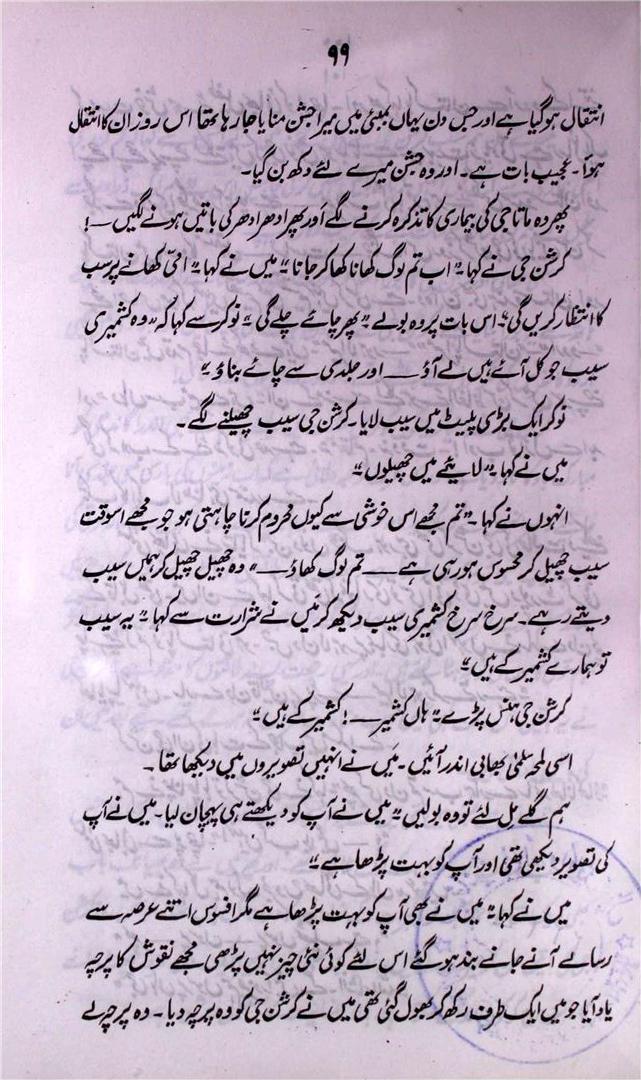 ۹۹
انتقال ہو گیا ہے اور جس دن یہاں بمبئی میں میرا جشن منایا جا رہا تھا اس روز ان کا انتقال
ہوا۔ عجیب بات ہے۔ اور وہ جشن میرے لئے دکھ بن گیا۔
پھر وہ ماتا جی کی بیماری کا تذکرہ کرنے لگے اور پھر ادھر ادھر کی باتیں ہونے لگیں —!
کرشن جی نے کہا۔ "اب تم لوگ کھانا کھا کر جانا" میں نے کہا۔ "امّی کھانے پر سب
کا انتظار کریں گی"۔ اس بات پر وہ بولے۔ "پھر چائے چلے گی" نوکر سے کہا کہ "وہ کشمیری
سیب جو کل آئے ہیں لے آؤ — اور جلدی سے چائے بناؤ۔"
نوکر ایک بڑی پلیٹ میں سیب لایا۔ کرشن جی سیب چھیلنے لگے۔
میں نے کہا۔ "لایئے میں چھیلوں"
انہوں نے کہا۔ "تم مجھے اس خوشی سے کیوں محروم کرنا چاہتی ہو جو مجھے اسوقت
سیب چھیل کر محسوس ہو رہی ہے — تم لوگ کھاؤ —" وہ چھیل چھیل کر ہمیں سیب
دیتے رہے۔ سرخ سرخ کشمیری سیب دیکھ کر میں نے شرارت سے کہا۔ "یہ سیب
تو ہمارے کشمیر کے ہیں"
کرشن جی ہنس پڑے۔ "ہاں کشمیر —! کشمیر کے ہیں"
اسی لمحہ سلمیٰ بھابی اندر آئیں۔ میں نے انہیں تصویروں میں دیکھا تھا۔
ہم گلے مل لئے تو وہ بولیں۔ "میں نے آپ کو دیکھتے ہی پہچان لیا۔ میں نے آپ
کی تصویر دیکھی تھی اور آپ کو بہت پڑھا ہے۔"
میں نے کہا۔ "میں نے بھی آپ کو بہت پڑھا ہے مگر افسوس اتنے عرصہ سے
رسالے آنے جانے بند ہو گئے اس لئے کوئی نئی چیز نہیں پڑھی مجھے نقوش کا پرچہ
یاد آیا جو میں ایک طرف رکھ کر بھول گئی تھی میں نے کرشن جی کو وہ پرچہ دیا۔ وہ پرچہ لے